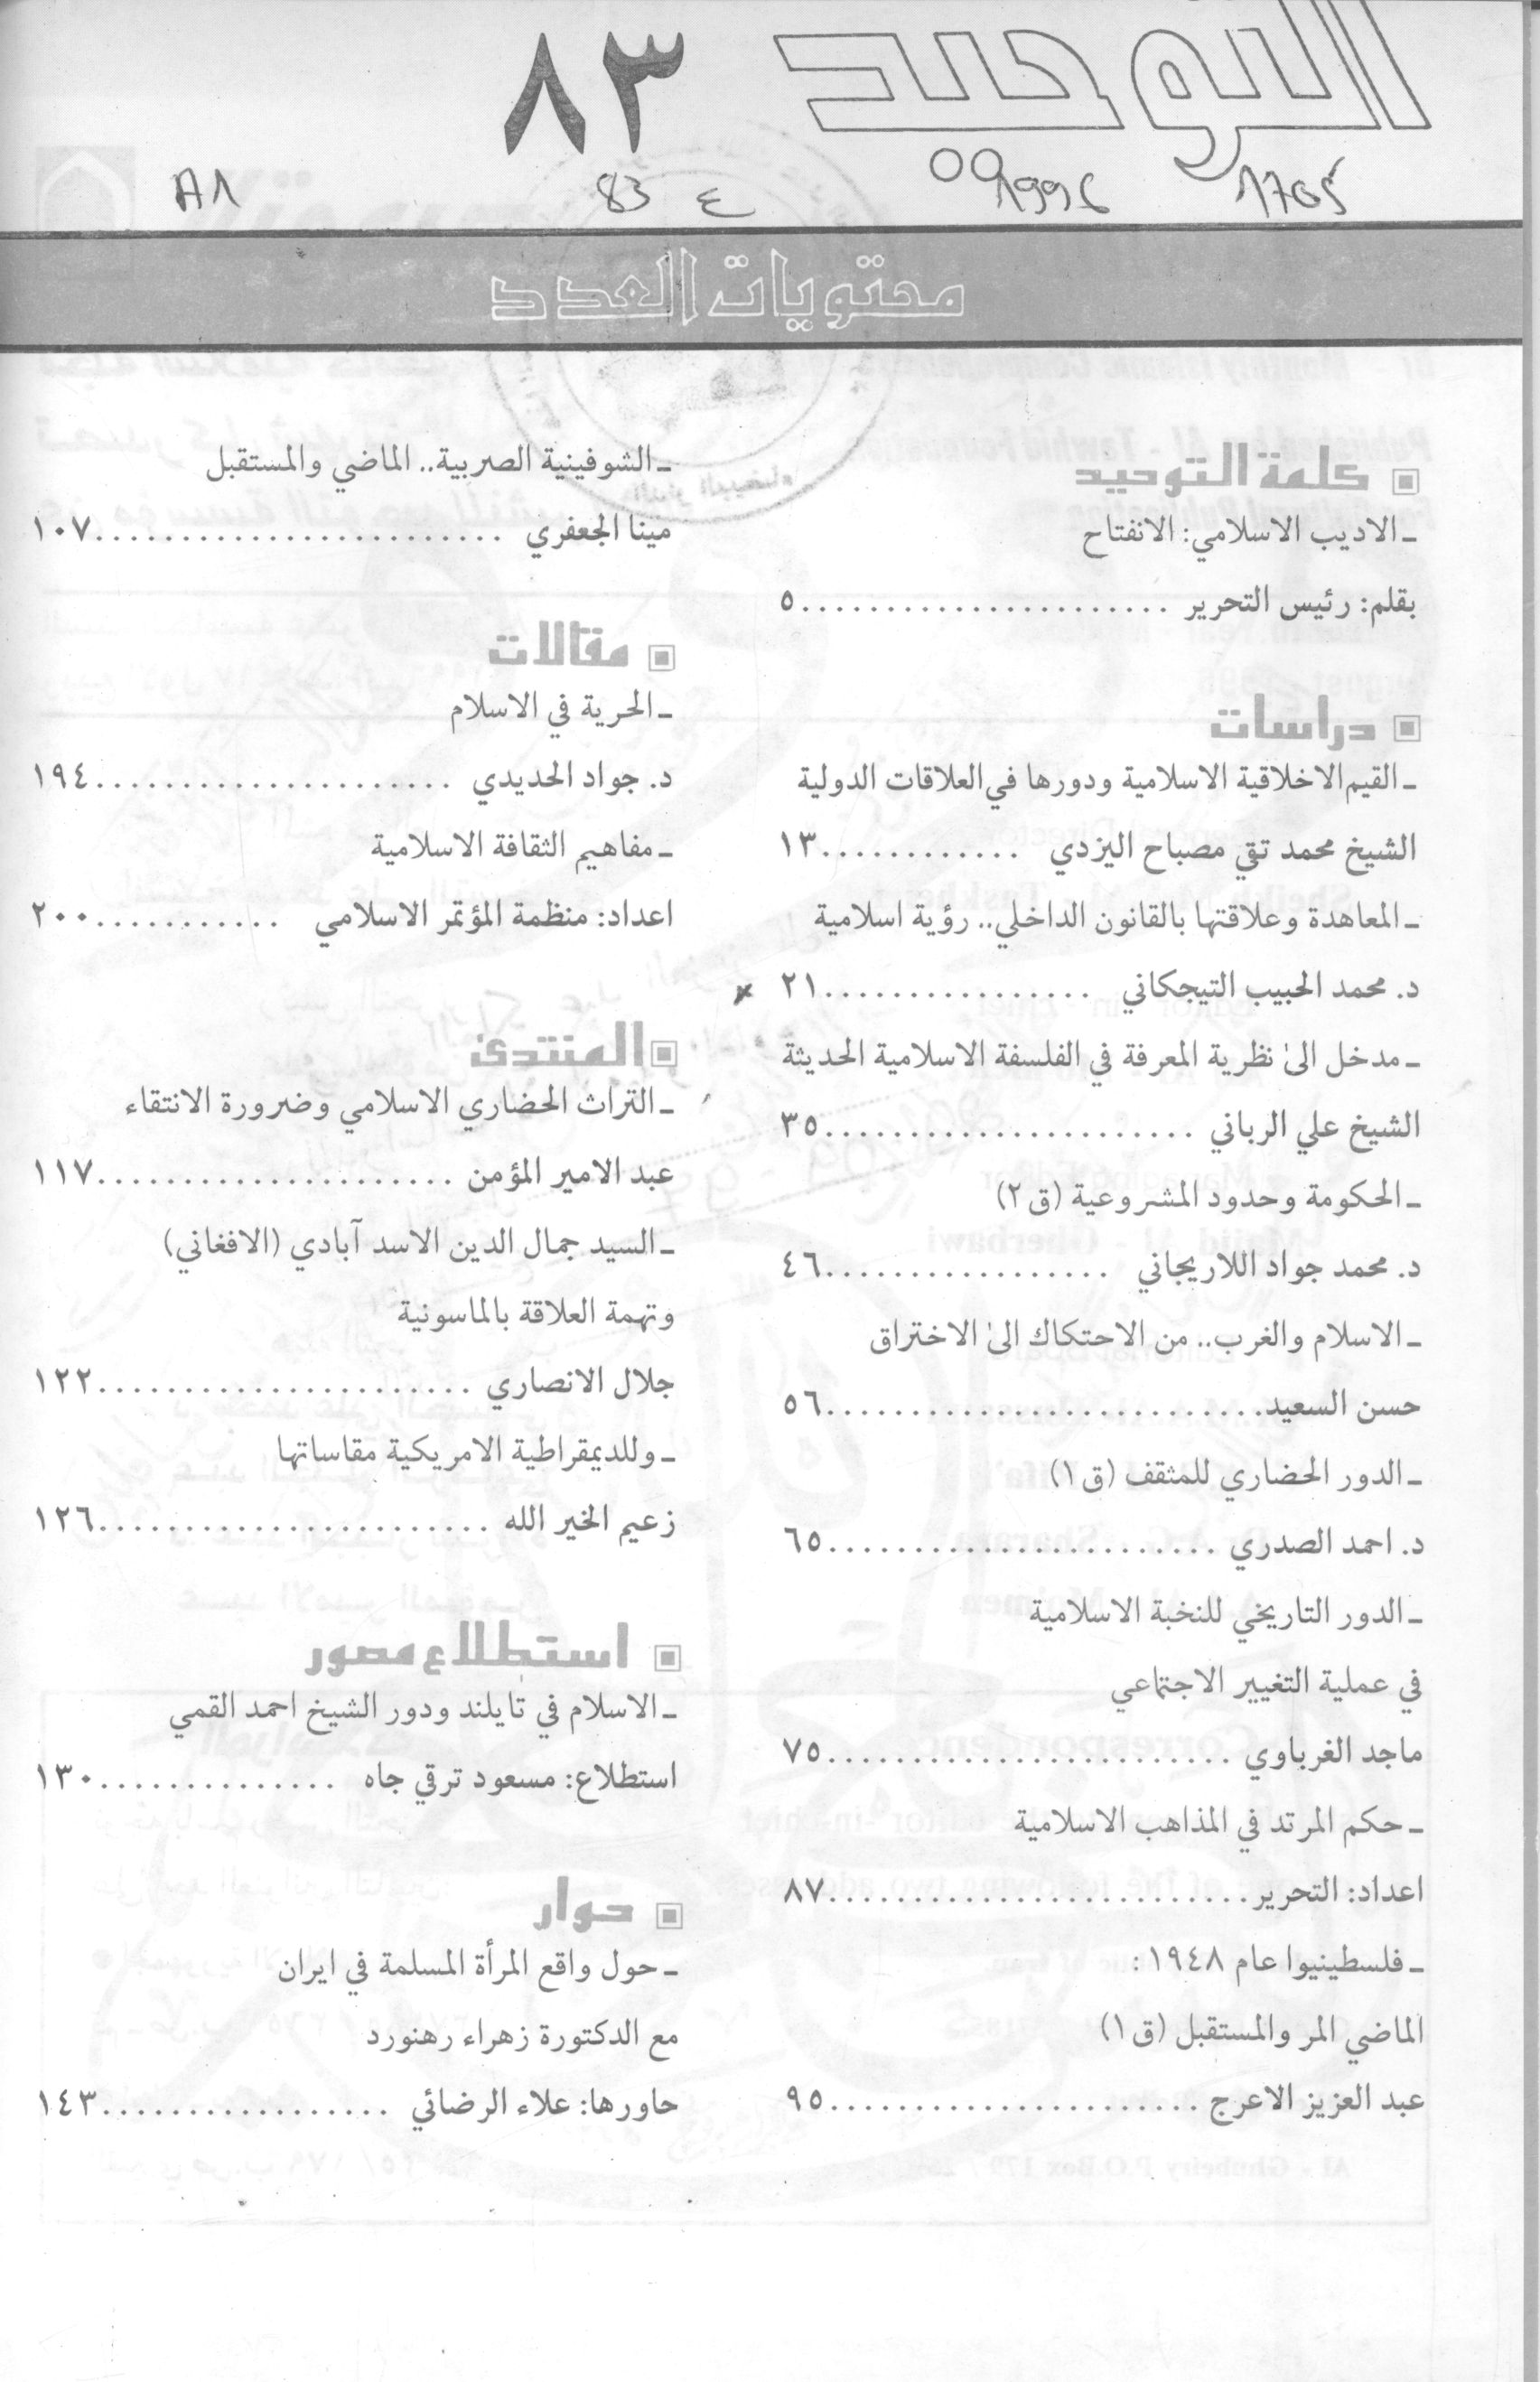 التوحيد ٨٣
A1 83 ٤ 1996 1705
محتويات العدد
كلمة التوحيد
ـ الاديب الاسلامي: الانفتاح
بقلم: رئيس التحرير ......................٥
دراسات
ـ القيم الاخلاقية الاسلامية ودورها في العلاقات الدولية
الشيخ محمد تقي مصباح اليزدي ............١٣
ـ المعاهدة وعلاقتها بالقانون الداخلي.. رؤية اسلامية
د. محمد الحبيب التيجكاني ................٢١
ـ مدخل الىٰ نظرية المعرفة في الفلسفة الاسلامية الحديثة
الشيخ علي الرباني ......................٣٥
ـ الحكومة وحدود المشروعية (ق ٢)
د. محمد جواد اللاريجاني .................٤٦
ـ الاسلام والغرب.. من الاحتكاك الىٰ الاختراق
حسن السعيد..........................٥٦
ـ الدور الحضاري للمثقف (ق ١)
د. احمد الصدري .......................٦٥
ـ الدور التاريخي للنخبة الاسلامية
في عملية التغيير الاجتماعي
ماجد الغرباوي ........................٧٥
ـ حكم المرتد في المذاهب الاسلامية
اعداد: التحرير.........................٨٧
ـ فلسطينيوا عام ١٩٤٨ :
الماضي المر والمستقبل (ق ١)
عبد العزيز الاعرج ......................٩٥
ـ الشوفينية الصربية.. الماضي والمستقبل
مينا الجعفري ........................١٠٧
مقالات
ـ الحرية في الاسلام
د. جواد الحديدي .....................١٩٤
ـ مفاهيم الثقافة الاسلامية
اعداد: منظمة المؤتمر الاسلامي ...........٢٠٠
المنتدىٰ
ـ التراث الحضاري الاسلامي وضرورة الانتقاء
عبد الامير المؤمن .....................١١٧
ـ السيد جمال الدين الاسد آبادي (الافغاني)
وتهمة العلاقة بالماسونية
جلال الانصاري ......................١٢٢
ـ وللديمقراطية الامريكية مقاساتها
زعيم الخير الله .......................١٢٦
استطلاع مصور
ـ الاسلام في تايلند ودور الشيخ احمد القمي
استطلاع: مسعود ترقي جاه ..............١٣٠
حوار
ـ حول واقع المرأة المسلمة في ايران
مع الدكتورة زهراء رهنورد
حاورها: علاء الرضائي .................١٤٣